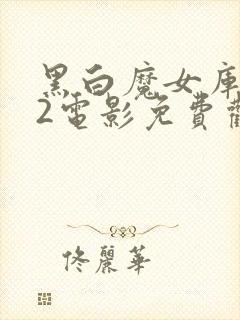 黑白魔女庫
2電影免費觀
佟麗華